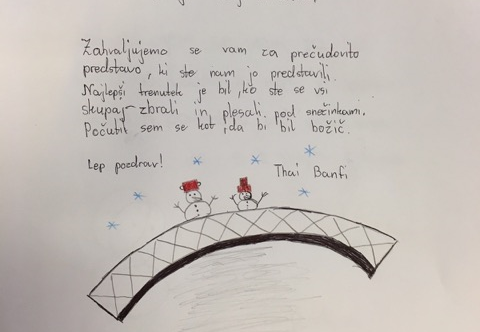 Zahvaljujemo se vam za prečudovito
predstavo, ki ste nam jo predstavili.
Najlepši trenutek je bil, ko ste se vsi
skupaj zbrali in plesali pod snežinkami.
Počutil sem se kot, da bi bil božič.
Lep pozdrav!
Thai Banfi